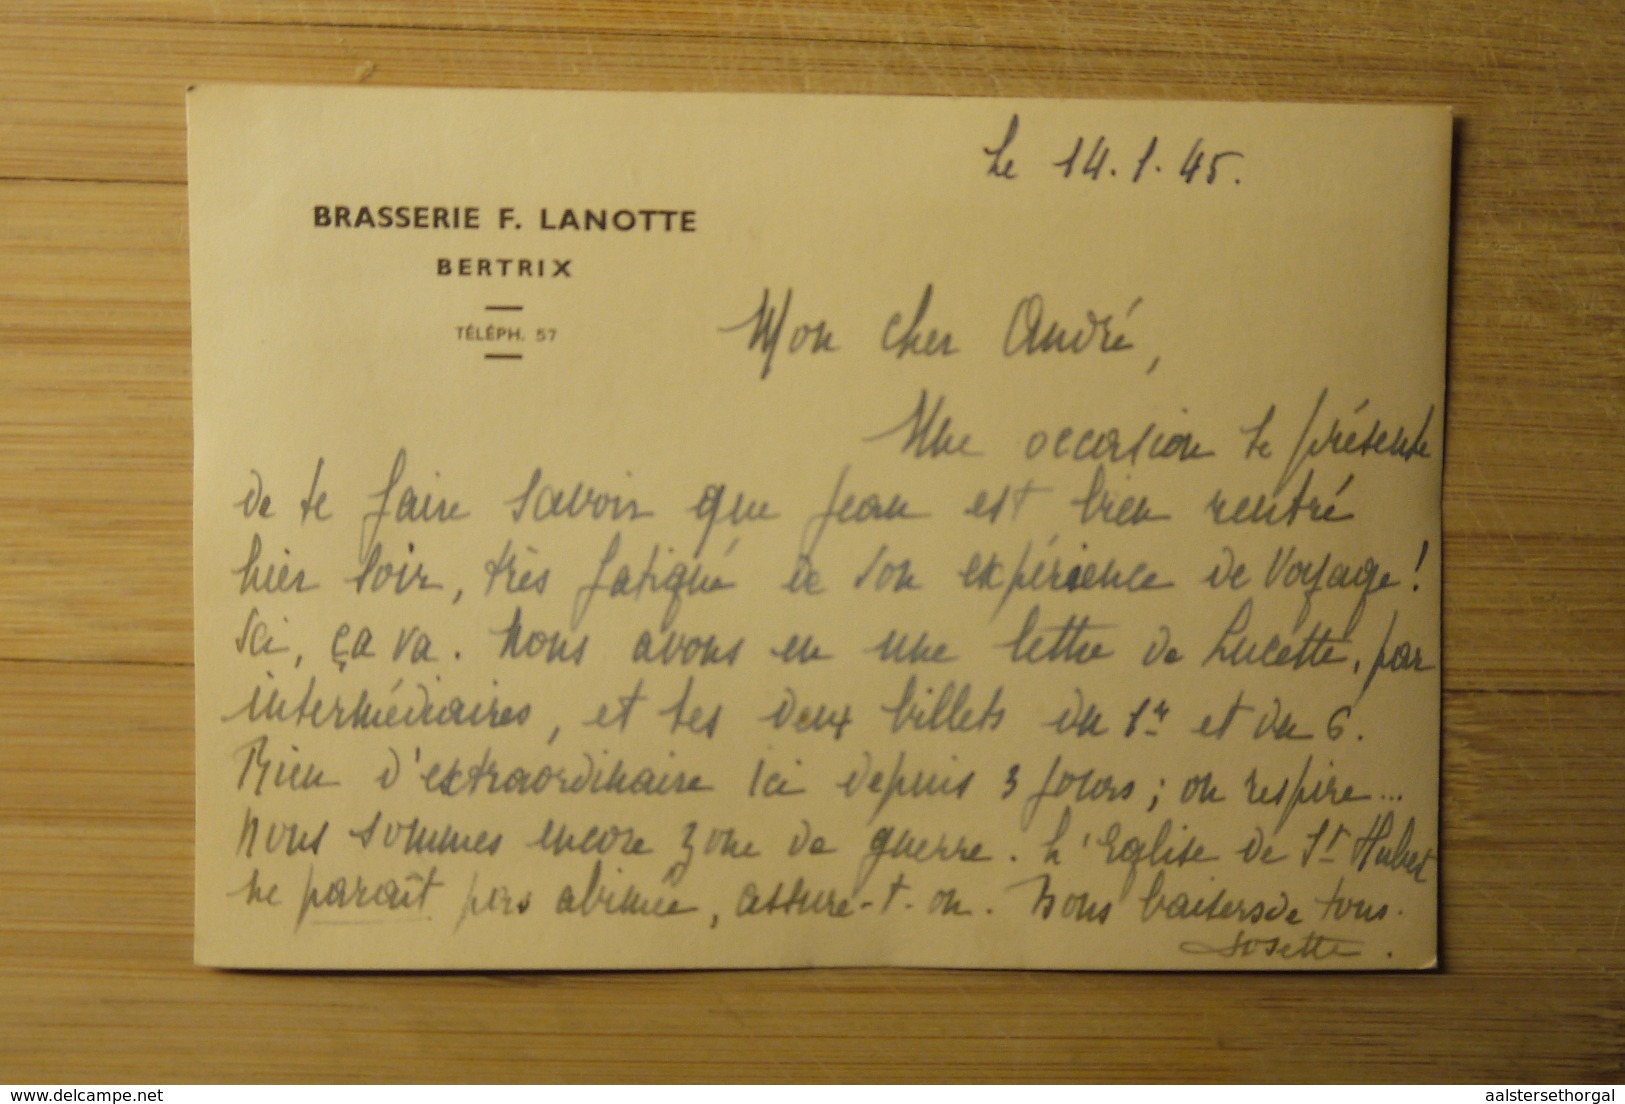 Le 14.1.45.
BRASSERIE F. LANOTTE
BERTRIX
TÉLÉPH. 57
Mon cher André,
Une occasion se présente
de te faire savoir que Jean est bien rentré
hier soir, très fatigué de son expérience de voyage !
Ici, ça va. Nous avons eu une lettre de Lucette, par
intermédiaires, et tes deux billets du 1er et du 6.
Rien d'extraordinaire ici depuis 3 jours ; on respire...
Nous sommes encore zone de guerre. L'Eglise de St Hubert
ne paraît pas abimée, assure-t-on. Bons baisers de tous.
Josette.
delcampe.net
aalstersethorgal